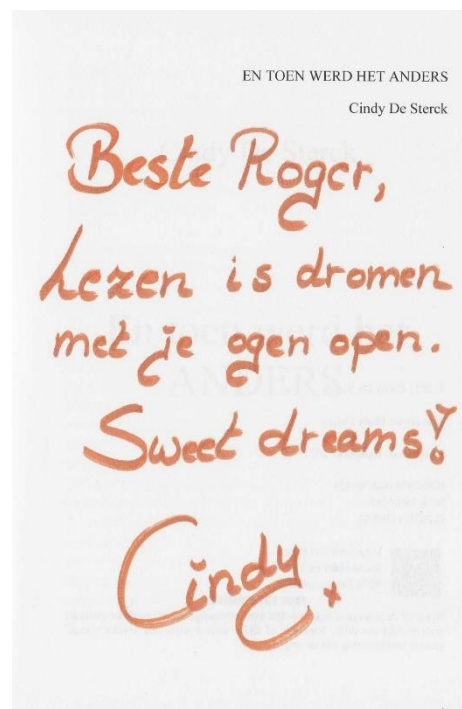 EN TOEN WERD HET ANDERS
Cindy De Sterck
Beste Roger,
Lezen is dromen
met je ogen open.
Sweet dreams!
Cindy x